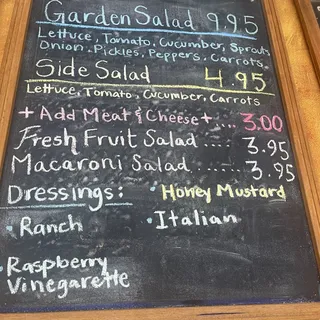 Garden Salad 9.95
Lettuce, Tomato, Cucumber, Sprouts
Onion, Pickles, Peppers, Carrots,
Side Salad 4.95
Lettuce, Tomato, Cucumber, Carrots
+ Add Meat & Cheese + .... 3.00
Fresh Fruit Salad ..... 3.95
Macaroni Salad .... 3.95
Dressings: • Honey Mustard
• Ranch • Italian
• Raspberry
Vinegarette